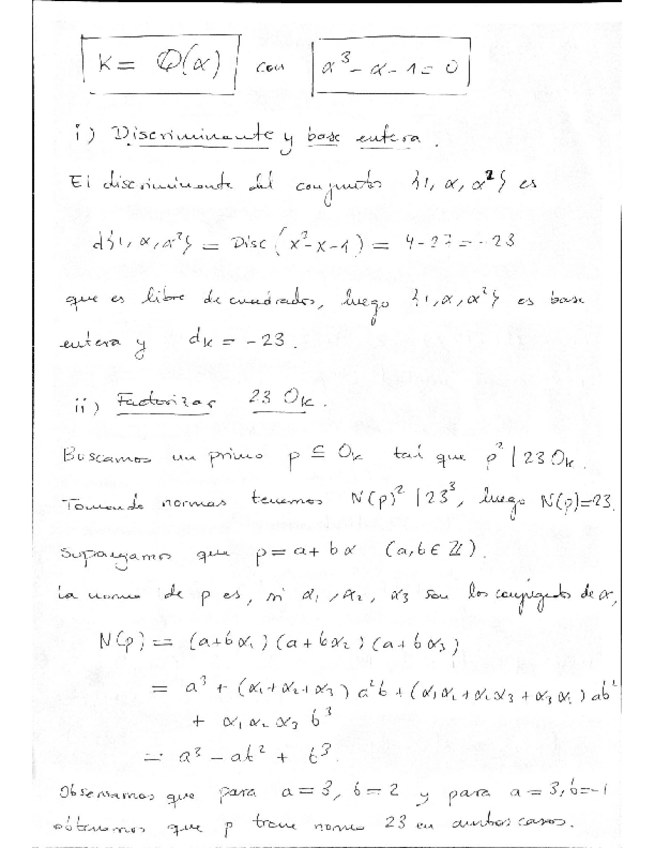 K = ℚ(α) con α³ - α - 1 = 0
i) Discriminante y base entera.
El discriminante del conjunto {1, α, α²} es
d{1, α, α²} = Disc (x³-x-1) = 4-27 = -23
que es libre de cuadrados, luego {1, α, α²} es base
entera y d_K = -23.
ii) Factorizar 23 O_K.
Buscamos un primo p ⊆ O_K tal que p² | 23 O_K.
Tomando normas tenemos N(p)² | 23³, luego N(p)=23.
Supongamos que p = a + bα (a, b ∈ ℤ).
La norma de p es, si α₁, α₂, α₃ son los conjugados de α,
N(p) = (a+bα₁)(a+bα₂)(a+bα₃)
= a³ + (α₁+α₂+α₃) a²b + (α₁α₂+α₂α₃+α₃α₁) ab²
+ α₁α₂α₃ b³
= a³ - ab² + b³.
Observamos que para a = 3, b = 2 y para a = 3, b = -1
obtenemos que p tiene norma 23 en ambos casos.